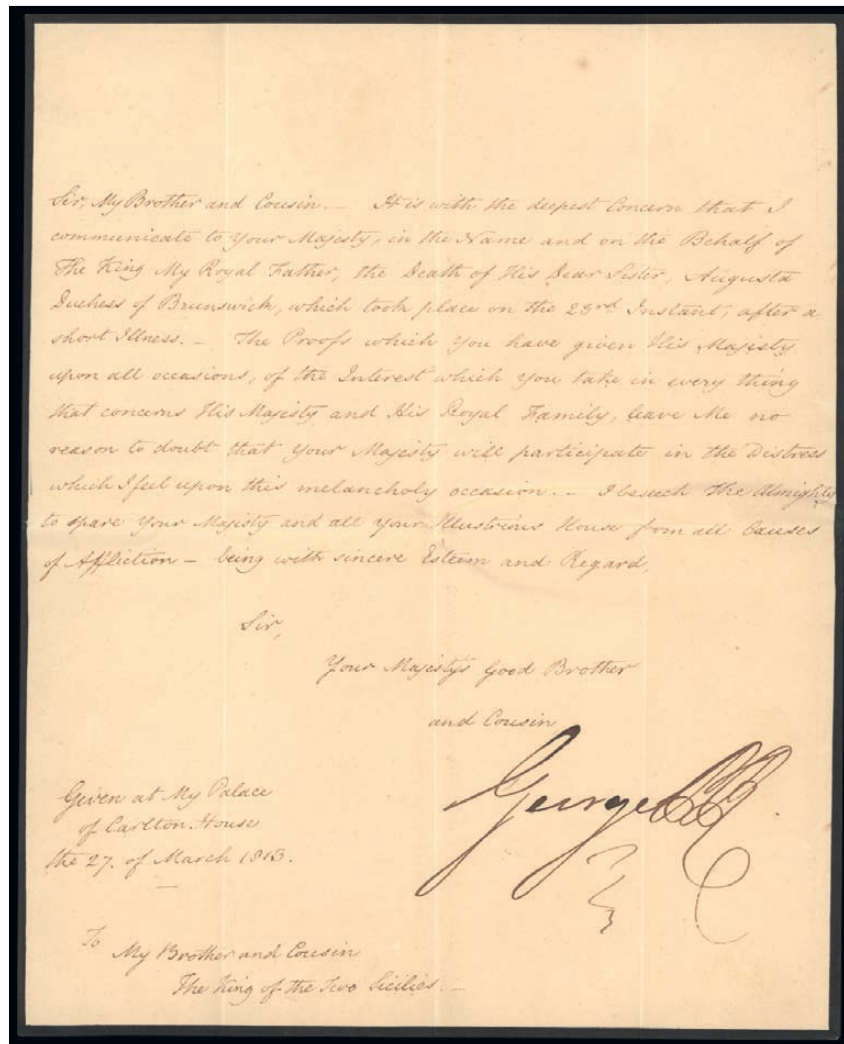 Sir, My Brother and Cousin. – It is with the deepest Concern that I
communicate to Your Majesty, in the Name and on the Behalf of
The King My Royal Father, the Death of His Dear Sister, Augusta
Duchess of Brunswick, which took place on the 23rd Instant, after a
short Illness. – The Proofs which You have given His Majesty
upon all occasions, of the Interest which You take in every thing
that concerns His Majesty and His Royal Family, leave Me no
reason to doubt that Your Majesty will participate in the Distress
which I feel upon this melancholy occasion. – I beseech The Almighty
to spare Your Majesty and all Your Illustrious House from all Causes
of Affliction – being with sincere Esteem and Regard,
Sir,
Your Majesty's Good Brother
and Cousin
George P R
Given at My Palace
of Carlton House
the 27. of March 1813.
To My Brother and Cousin
The King of the Two Sicilies. –